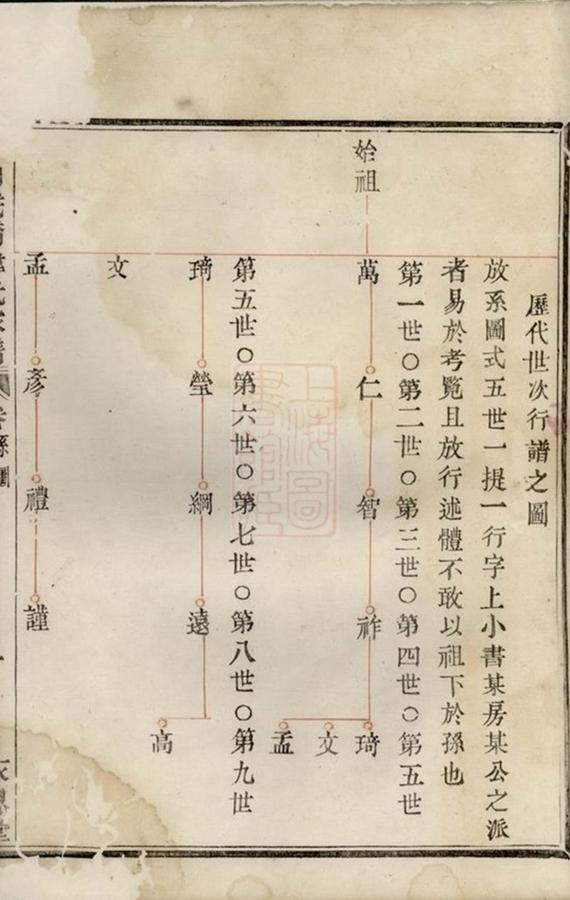 歷代世次行譜之圖
放系圖式五世一提一行字上小書某房某公之派
者易於考覧且放行述體不敢以祖下於孫也
第一世○第二世○第三世○第四世○第五世
始祖
萬 仁 智 祚 琦
文
孟
第五世○第六世○第七世○第八世○第九世
琦 瑩 綱 遠
高
文
孟 彥 禮 謹
上海圖書館藏